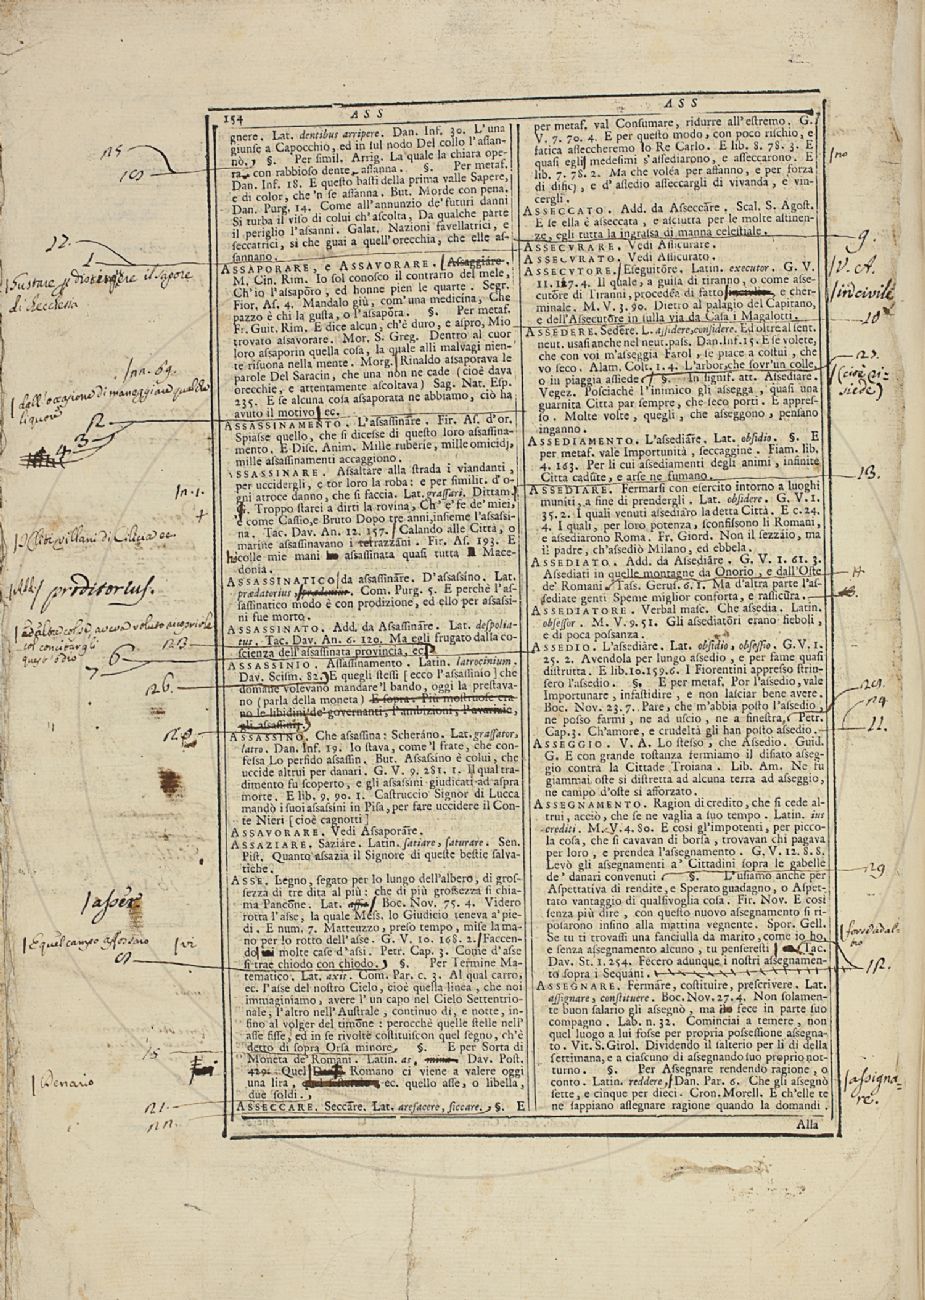 154
ASS
ASS
gnere. Lat. dentibus arripere. Dan. Inf. 30. L'una
giunse a Capocchio, ed in sul nodo Del collo l'assan-
nò, §. Per simil. Arrig. La quale la chiara ope-
ra con rabbioso dente assanna. §. Per metaf.
Dan. Inf. 18. E questo basti della prima valle Sapere,
e di color, che 'n se assanna. But. Morde con pena.
Dan. Purg. 14. Come all'annunzio de' futuri danni
Si turba il viso di colui ch'ascolta, Da qualche parte
il periglio l'assanni. Galat. Nazioni favellatrici, e
seccatrici, si che guai a quell'orecchia, che elle as-
sannano.
ASSAPORARE, e ASSAVORARE. Assaggiare.
M. Cin. Rim. Io sol conosco il contrario del mele,
Ch'io l'assapóro, ed honne pien le quarte. Segr.
Fior. As. 4. Mandalo giù, com'una medicina, Che
pazzo è chi la gusta, o l'assapóra. §. Per metaf.
Fr. Guit. Rim. E dice alcun, ch'è duro, e aspro, Mio
trovato assavorare. Mor. S. Greg. Dentro al cuor
loro assaporin quella cosa, la quale alli malvagi nien-
te risuona nella mente. Morg. Rinaldo assaporava le
parole Del Saracin, che una non ne cade (cioè dava
orecchie, e attenamente ascoltava) Sag. Nat. Esp.
235. E se alcuna cosa assaporata ne abbiamo, ciò ha
avuto il motivo ec.
ASSASSINAMENTO. L'assassinare. Fir. As. d'or.
Spiasse quello, che si dicesse di questo loro assassina-
mento. E Disc. Anim. Mille ruberie, mille omicidj,
mille assassinamenti accaggiono.
ASSASSINARE. Assaltare alla strada i viandanti,
per uccidergli, e tor loro la roba: e per similit. d'o-
gni atroce danno, che si faccia. Lat. grassari. Dittam.
Troppo starei a dirti la rovina, Ch'e' fe de' miei,
e come Cassio, e Bruto Dopo tre anni, insieme l'assassi-
na. Tac. Dav. An. 12. 157. Calando alle Città, o
marine assassinavano i terrazzani. Fir. As. 193. E
colle mie mani ho assassinata quasi tutta Mace-
donia.
ASSASSINATICO da assassinare. D'assassino. Lat.
prædatorius. Com. Purg. 5. E perchè l'as-
sassinatico modo è con prodizione, ed ello per assassi-
ni fue morto.
ASSASSINATO. Add. da Assassinare. Lat. despolia-
tus. Tac. Dav. An. 6. 120. Ma egli frugato dalla co-
scienza dell'assassinata provincia, ec
ASSASSINIO. Assassinamento. Latin. latrocinium.
Dav. Scism. 82. E quegli stessi [ecco l'assassinio] che
domane volevano mandare 'l bando, oggi la prestava-
no (parla della moneta) E sopra. Più mostruose era-
no le libidini de' governanti, l'ambizioni, l'avarizie,
gli assassinj.
ASSASSINO. Che assassina: Scheráno. Lat. grassator,
latro. Dan. Inf. 19. Io stava, come 'l frate, che con-
fessa Lo perfido assassin. But. Assassino è colui, che
uccide altrui per danari. G. V. 9. 281. 1. Il qual tra-
dimento fu scoperto, e gli assassini giudicati ad aspra
morte. E lib. 9. 90. 1. Castruccio Signor di Lucca
mandò i suoi assassini in Pisa, per fare uccidere il Con-
te Nieri [cioè cagnotti]
ASSAVORARE. Vedi Assaporáre.
ASSAZIARE. Saziáre. Latin. satiare, saturare. Sen.
Pist. Quanto assazia il Signore di queste bestie salva-
tiche.
ASSE. Legno, segato per lo lungo dell'albero, di gros-
sezza di tre dita al più: che di più grossezza si chia-
ma Pancóne. Lat. Boc. Nov. 75. 4. Videro
rotta l'asse, la quale Mess. lo Giudicio teneva a' pie-
di. E num. 7. Matteuzzo, preso tempo, mise la ma-
no per lo rotto dell'asse. G. V. 10. 168. 2. Faccen-
do molte case d'assi. Petr. Cap. 3. Come d'asse
si trae chiodo con chiodo. §. Per Termine Ma-
tematico. Lat. axis. Com. Par. c. 3. Al qual carro,
ec. l'asse del nostro Cielo, cioè questa linea, che noi
immaginiamo, avere l'un capo nel Cielo Settentrio-
nale, l'altro nell'Australe, continuo dì, e notte, in-
fino al volger del timone: perocchè quelle stelle nell'
asse fisse, ed in se rivolte costituiscon quel segno, ch'è
detto di sopra Orsa minore. §. E per Sorta di
Moneta de' Romani. Latin. as, Dav. Post.
429. Quel Romano ci viene a valere oggi
una lira, ec. quello asse, o libella,
due soldi.
ASSECCARE. Seccáre. Lat. arefacere, siccare, §. E
per metaf. val Consumare, ridurre all'estremo. G.
V. 7. 70. 4. E per questo modo, con poco rischio, e
fatica asseccheremo lo Re Carlo. E lib. 8. 78. 3. E
quasi egli medesimi s'assediarono, e asseccarono. E
lib. 7. 78. 2. Ma che voléa per affanno, e per forza
di dificj, e d'assedio asseccargli di vivanda, e vin-
cergli.
ASSECCATO. Add. da Asseccáre. Scal. S. Agost.
E se ella è asseccata, e asciutta per le molte astinen-
ze, egli tutta la ingrassa di manna celestiale.
ASSECURARE. Vedi Assicurare.
ASSECURATO. Vedi Assicurato.
ASSECUTORE. Eseguitóre. Latin. executor. G. V.
11. 117. 4. Il quale, a guisa di tiranno, o come asse-
cutóre di Tiranni, procedéa di fatto e cher-
minale. M. V. 3. 90. Dietro al palagio del Capitano,
e dell'Assecutóre in sulla via da Casa i Magalotti.
ASSEDERE. Sedére. L. assidere, considere. Ed oltre al sent.
neut. usasi anche nel neut. pass. Dan. Inf. 15. E se volete,
che con voi m'asseggia Farol, se piace a costui, che
vo seco. Alam. Colt. 1. 4. L'arbor, che sovr'un colle,
o in piaggia assiede §. In signif. att. Assediare.
Vegez. Posciachè l'inimico gli assegga, quasi una
guarnita Città par sempre, che seco porti. E appres-
so. Molte volte, quegli, che asseggono, pensano
inganno.
ASSEDIAMENTO. L'assediáre. Lat. obsidio. §. E
per metaf. vale Importunità, seccaggine. Fiam. lib.
4. 163. Per li cui assediamenti degli animi, infinite
Città cadute, e arse ne fumano.
ASSEDIARE. Fermarsi con esercito intorno a luoghi
muniti, a fine di prendergli. Lat. obsidere. G. V. 1.
35. 2. I quali venuti assediaro la detta Città. E c. 24.
4. I quali, per loro potenza, sconfissono li Romani,
e assediarono Roma. Fr. Giord. Non il sezzaio, ma
il padre, ch'assediò Milano, ed ebbela.
ASSEDIATO. Add. da Assediáre. G. V. 1. 61. 3.
Assediati in quelle montagne da Onorio, e dall'Oste
de' Romani. Tass. Gerus. 6. 1. Ma d'altra parte l'as-
sediate genti Speme miglior conforta, e rassicura.
ASSEDIATORE. Verbal masc. Che assedia. Latin.
obsessor. M. V. 9. 51. Gli assediatóri erano fieboli,
e di poca possanza.
ASSEDIO. L'assediáre. Lat. obsidio, obsessio. G. V. 1.
25. 2. Avendola per lungo assedio, e per fame quasi
distrutta. E lib. 10. 159. 6. I Fiorentini appresso strin-
sero l'assedio. §. E per metaf. Por l'assedio, vale
Importunare, infastidire, e non lasciar bene avere.
Boc. Nov. 23. 7. Pare, che m'abbia posto l'assedio,
ne posso farmi, ne ad uscio, ne a finestra, Petr.
Cap. 3. Ch'amore, e crudeltà gli han posto assedio.
ASSEGGIO. V. A. Lo stesso, che Assedio. Guid.
G. E con grande tostanza fermiamo il disiato asseg-
gio contra la Cittade Troiana. Lib. Am. Ne fu
giammai oste sì distretta ad alcuna terra ad asseggio,
ne campo d'oste sì afforzato.
ASSEGNAMENTO. Ragion di credito, che si cede al-
trui, acciò, che se ne vaglia a suo tempo. Latin. ius
crediti. M. V. 4. 80. E così gl'impotenti, per picco-
la cosa, che si cavavan di borsa, trovavan chi pagava
per loro, e prendea l'assegnamento. G. V. 12. 8. 8.
Levò gli assegnamenti a' Cittadini sopra le gabelle
de' danari convenuti §. L'usiamo anche per
Aspettativa di rendite, e Sperato guadagno, o Aspet-
tato vantaggio di qualsivoglia cosa. Fir. Nov. E così
senza più dire, con questo nuovo assegnamento si ri-
posarono insino alla mattina vegnente. Spor. Gell.
Se tu ti trovassi una fanciulla da marito, come io ho,
e senza assegnamento alcuno, tu penseresti Tac.
Dav. St. 1. 254. Fecero adunque i nostri assegnamen-
to sopra i Sequáni.
ASSEGNARE. Fermáre, costituire, prescrivere. Lat.
assignare, constituere. Boc. Nov. 27. 4. Non solamen-
te buon salario gli assegnò, ma lo fece in parte suo
compagno. Lab. n. 32. Cominciai a temere, non
quel luogo a lui fosse per propria possessione assegna-
to. Vit. S. Girol. Dividendo il salterio per li dì della
settimana, e a ciascuno dì assegnando suo proprio not-
turno. §. Per Assegnare rendendo ragione, o
conto. Latin. reddere, Dan. Par. 6. Che gli assegnò
sette, e cinque per dieci. Cron. Morell. E ch'elle te
ne sappiano assegnare ragione quando la domandi.
Alla
12.
dall'occasione di maneggiare qualche
liquore
12
3
4
In. 1.
proditorius.
6
7
126.
asser.
Denario
21.
no
9.
V. A.
incivile
10
23.
(cioè si-
siede)
13.
11.
29
12.
assigna-
re.